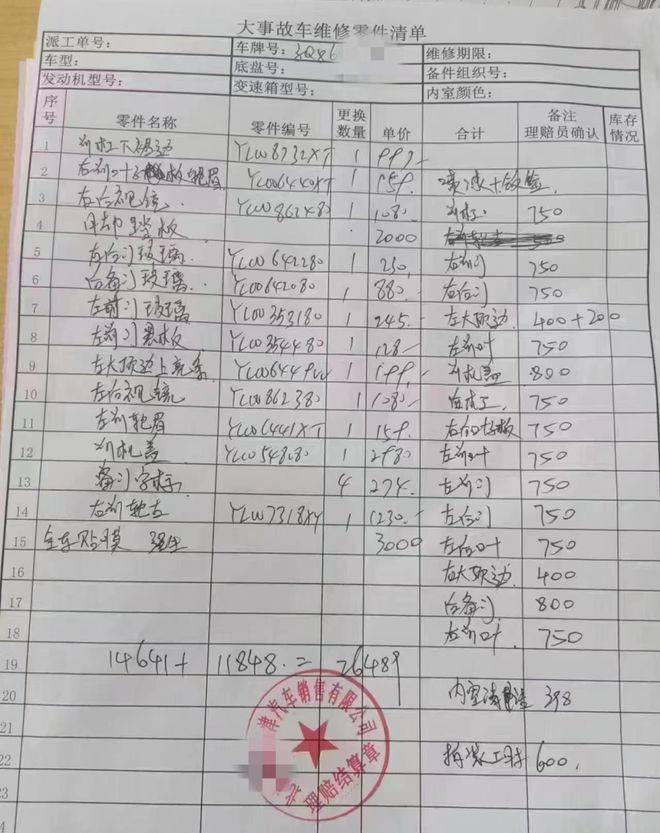 大事故车维修零件清单
派工单号： 车牌号：3Q86 维修期限：
车型： 底盘号： 备件组织号：
发动机型号： 变速箱型号： 内室颜色：
序号 零件名称 零件编号 更换数量 单价 合计 备注 理赔员确认 库存情况
1 前杠下饰边 YL008732XT 1
2 YL006440XT 1 159. 喷漆+钣金
3 右后视镜 YL00862480 1 1080- 前杠 750
4 2000
5 左后门玻璃 YL00642280 1 230. 右前门 750
6 后备门玻璃 YL00642080 1 880. 右后门 750
7 左前门玻璃 YL00353180 1 245. 左大顶边 400+200
8 左前门 YL00354480 1 128- 左前叶 750
9 左大顶边上 1 前机盖 800
10 左后视镜 YL00862380 1 1080- 后杠 750
11 左前轮眉 YL006441XT 1 159. 750
12 前机盖 1 2980 右前叶 750
13 备门字标 4 274. 左前门 750
14 右前 YL007318XY 1 1230.- 左后门 750
15 全车贴膜 3000 左后叶 750
16 右大顶边 400
17 后备门 800
18 750
19 14641+ 11848.= 26489
20 内室清 398
21
22 拆装工时 600.
23
津汽车销售有限公司
理赔结算章